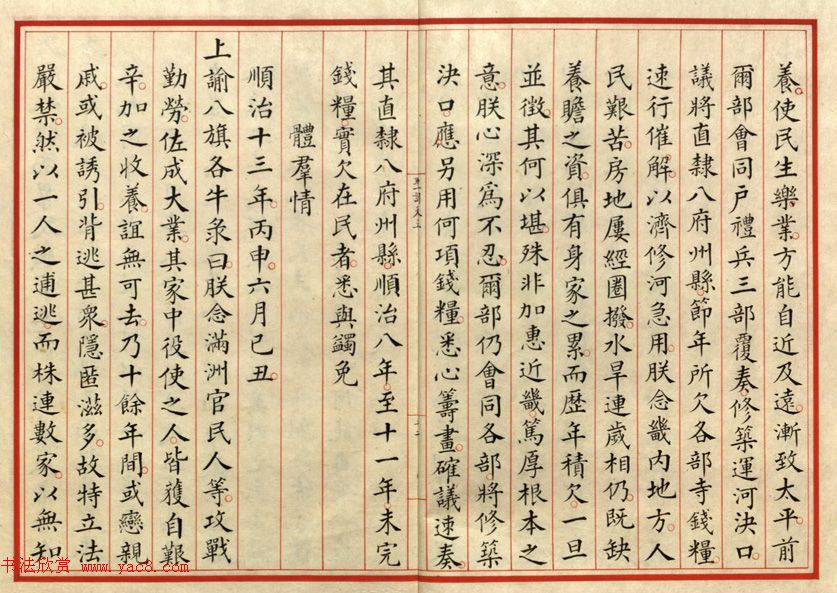 養使民生樂業方能自近及遠漸致太平前
爾部會同戶禮兵三部覆奏修築運河決口
議將直隸八府州縣節年所欠各部寺錢糧
速行催解以濟修河急用朕念畿內地方人
民艱苦房地屢經圈撥水旱連歲相仍既缺
養贍之資俱有身家之累而歷年積欠一旦
並徵其何以堪殊非加惠近畿篤厚根本之
意朕心深為不忍爾部仍會同各部將修築
決口應另用何項錢糧悉心籌畫確議速奏
其直隸八府州縣順治八年至十一年未完
錢糧實欠在民者悉與蠲免
體羣情
順治十三年丙申六月己丑
上諭八旗各牛彔曰朕念滿洲官民人等攻戰
勤勞佐成大業其家中役使之人皆獲自艱
辛加之收養誼無可去乃十餘年間或戀親
戚或被誘引背逃甚衆隱匿滋多故特立法
嚴禁然以一人之逋逃而株連數家以無知
书法欣赏 www.yac8.com